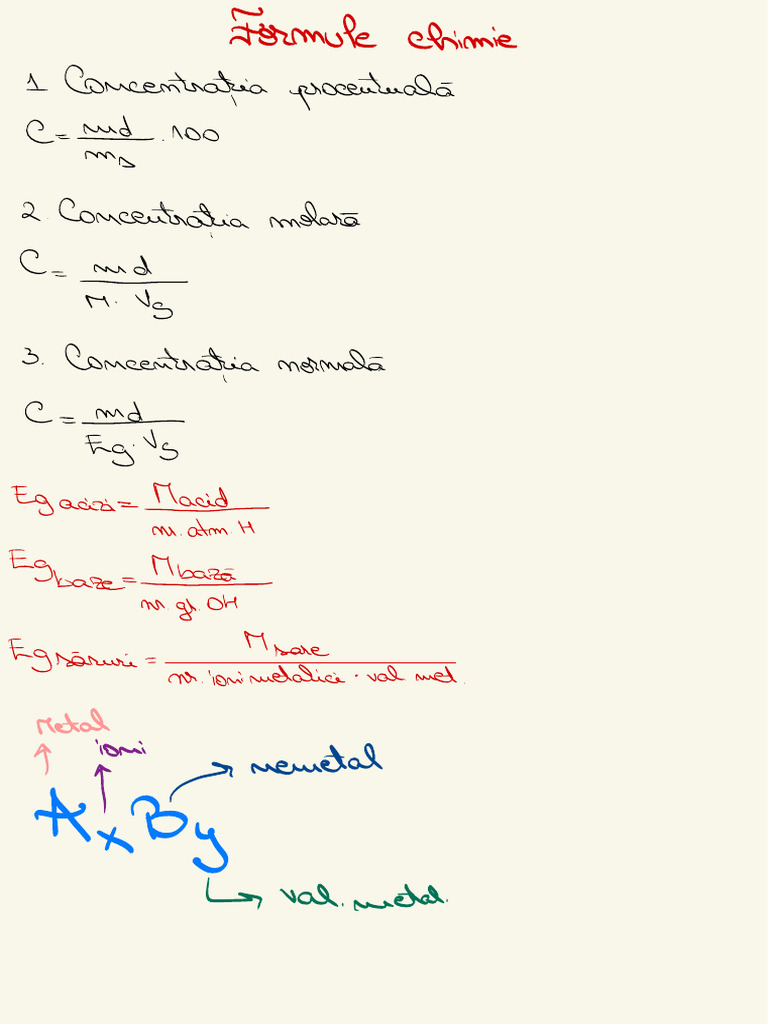 Formule chimie
1 Concentrația procentuală
C = md / ms · 100
2. Concentrația molară
C = md / M · Vs
3. Concentrația normală
C = md / Eg · Vs
Eg acizi = Macid / nr. atm. H
Eg baze = Mbază / nr. gr. OH
Eg săruri = Msare / nr. ioni metalici · val met.
Metal
ioni
nemetal
AxBy
val. metal.